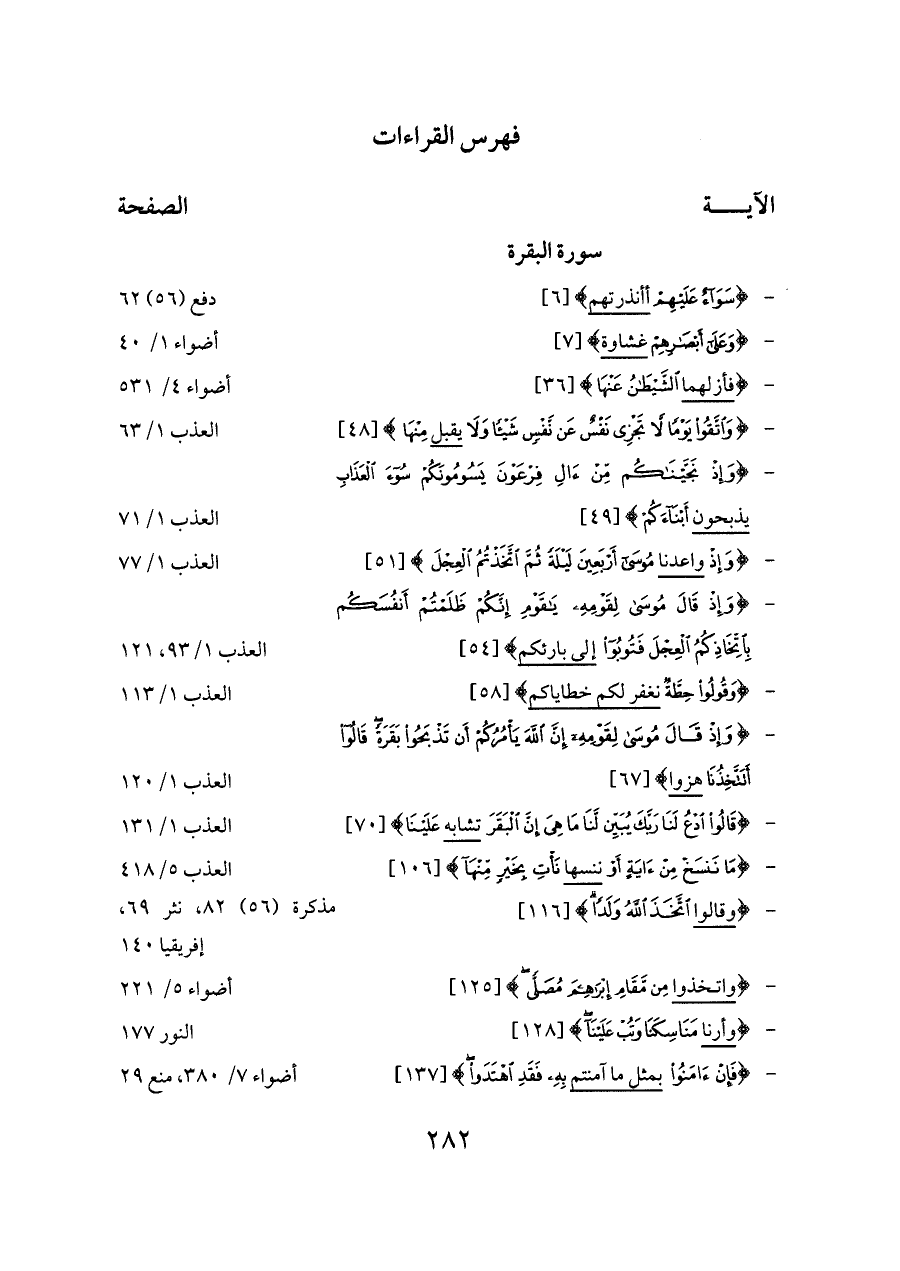 فهرس القراءات
الآيـــــة الصفحة
سورة البقرة
- ﴿سَوَآءٌ عَلَيْهِمْ أأنذرتهم﴾ [٦] دفع (٥٦) ٦٢
- ﴿وَعَلَىٰٓ أَبْصَٰرِهِمْ غشاوة﴾ [٧] أضواء ١/ ٤٠
- ﴿فأزلهما ٱلشَّيْطَٰنُ عَنْهَا﴾ [٣٦] أضواء ٤/ ٥٣١
- ﴿وَٱتَّقُوا۟ يَوْمًا لَّا تَجْزِى نَفْسٌ عَن نَّفْسٍ شَيْـًٔا وَلَا يقبل مِنْهَا﴾ [٤٨] العذب ١/ ٦٣
- ﴿وَإِذْ نَجَّيْنَٰكُم مِّنْ ءَالِ فِرْعَوْنَ يَسُومُونَكُمْ سُوٓءَ ٱلْعَذَابِ
يذبحون أَبْنَآءَكُمْ﴾ [٤٩] العذب ١/ ٧١
- ﴿وَإِذْ واعدنا مُوسَىٰٓ أَرْبَعِينَ لَيْلَةً ثُمَّ ٱتَّخَذْتُمُ ٱلْعِجْلَ﴾ [٥١] العذب ١/ ٧٧
- ﴿وَإِذْ قَالَ مُوسَىٰ لِقَوْمِهِۦ يَٰقَوْمِ إِنَّكُمْ ظَلَمْتُمْ أَنفُسَكُم
بِٱتِّخَاذِكُمُ ٱلْعِجْلَ فَتُوبُوٓا۟ إلى بارئكم﴾ [٥٤] العذب ١/ ٩٣، ١٢١
- ﴿وَقُولُوا۟ حِطَّةٌ نغفر لكم خطاياكم﴾ [٥٨] العذب ١/ ١١٣
- ﴿وَإِذْ قَالَ مُوسَىٰ لِقَوْمِهِۦٓ إِنَّ ٱللَّهَ يَأْمُرُكُمْ أَن تَذْبَحُوا۟ بَقَرَةً ۖ قَالُوٓا۟
أَتَتَّخِذُنَا هزوا﴾ [٦٧] العذب ١/ ١٢٠
- ﴿قَالُوا۟ ٱدْعُ لَنَا رَبَّكَ يُبَيِّن لَّنَا مَا هِىَ إِنَّ ٱلْبَقَرَ تشابه عَلَيْنَا﴾ [٧٠] العذب ١/ ١٣١
- ﴿مَا نَنسَخْ مِنْ ءَايَةٍ أَوْ ننسها نَأْتِ بِخَيْرٍ مِّنْهَآ﴾ [١٠٦] العذب ٥/ ٤١٨
- ﴿وقالوا ٱتَّخَذَ ٱللَّهُ وَلَدًا ۗ﴾ [١١٦] مذكرة (٥٦) ٨٢، نثر ٦٩،
إفريقيا ١٤٠
- ﴿واتخذوا مِن مَّقَامِ إِبْرَٰهِۦمَ مُصَلًّى ۖ﴾ [١٢٥] أضواء ٥/ ٢٢١
- ﴿وأرنا مَنَاسِكَنَا وَتُبْ عَلَيْنَآ ۖ﴾ [١٢٨] النور ١٧٧
- ﴿فَإِنْ ءَامَنُوا۟ بمثل ما آمنتم بِهِۦ فَقَدِ ٱهْتَدَوا۟ ۖ﴾ [١٣٧] أضواء ٧/ ٣٨٠، منع ٢٩
٢٨٢